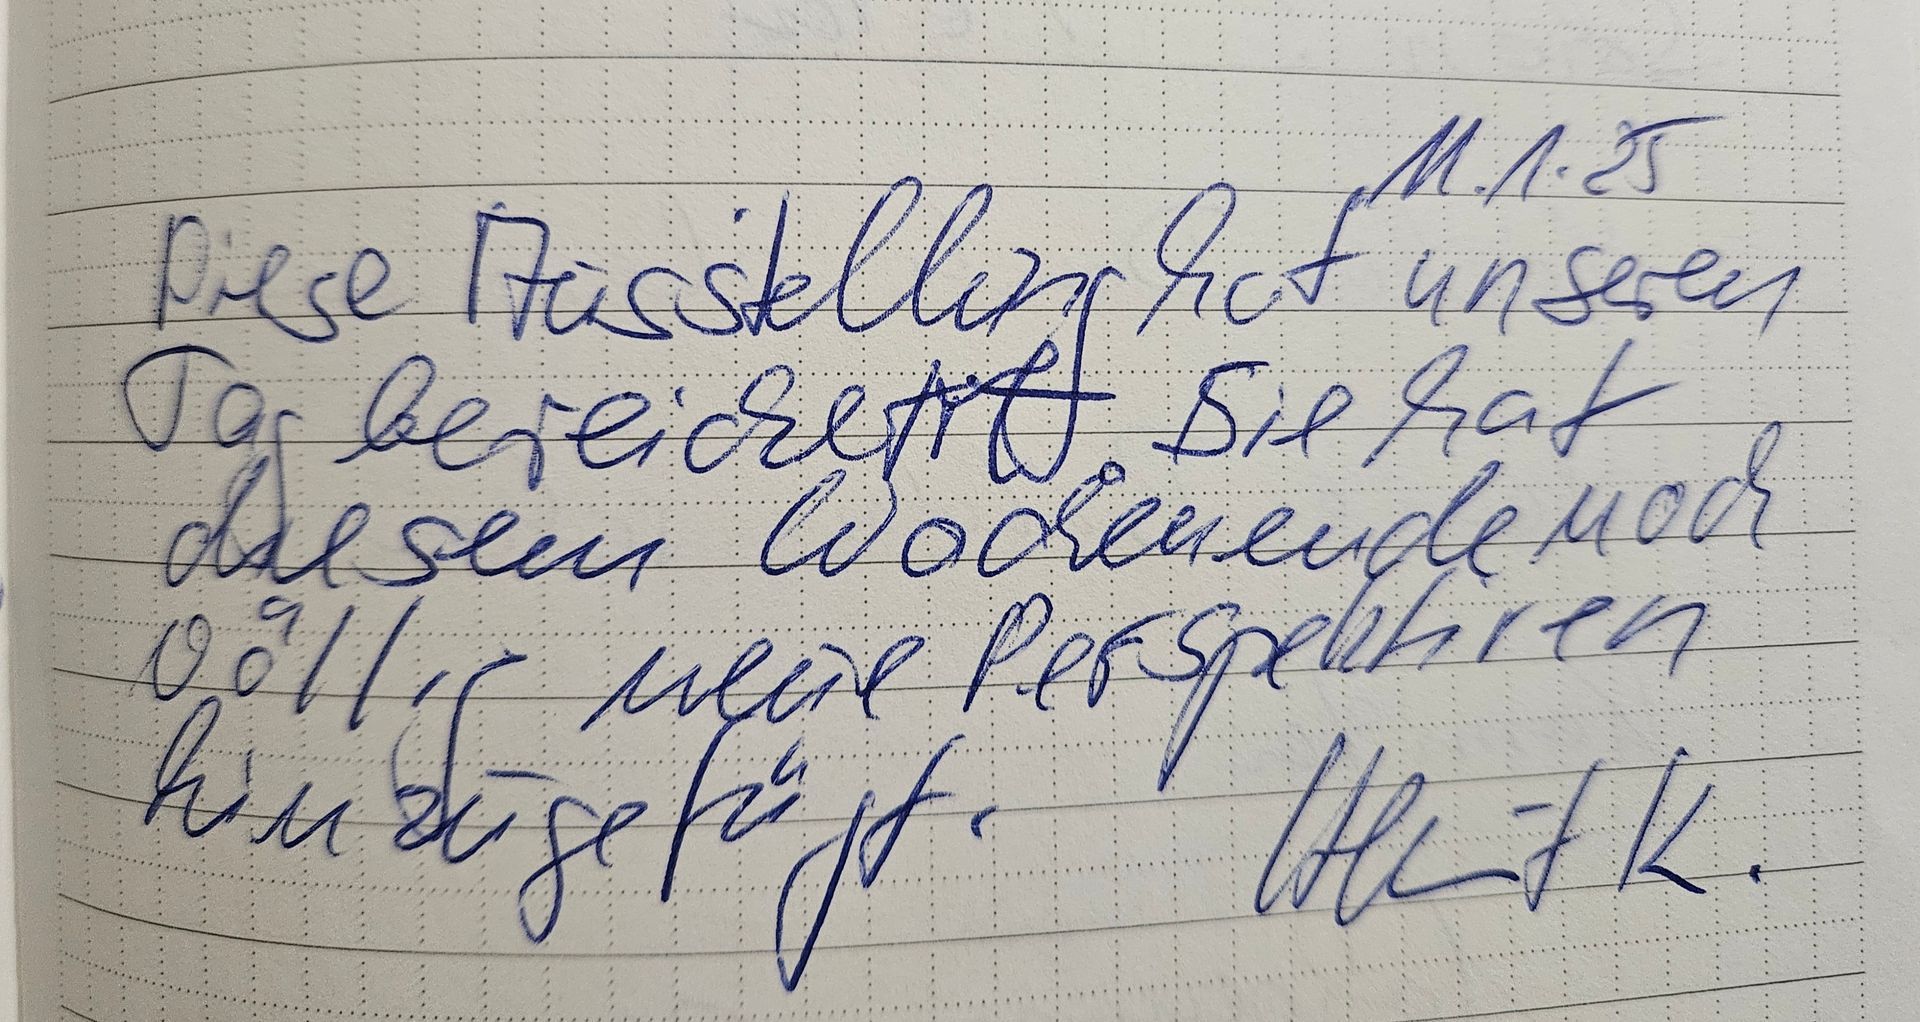 11.1.25
Diese Ausstellung hat unseren
Tag bereichert. Sie hat
diesem Wochenende noch
völlig neue Perspektiven
hinzugefügt.
K.